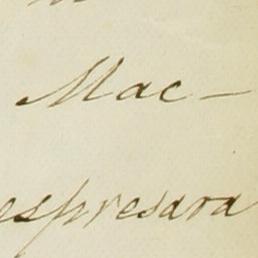 Mac-
espresara